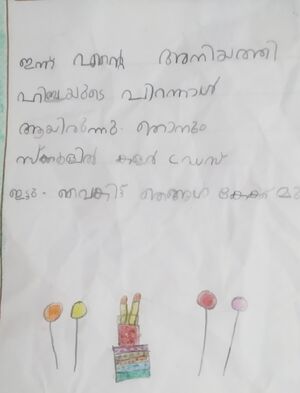 ഇന്ന് എന്റെ അനിയത്തി
ഹിബയുടെ പിറന്നാൾ
ആയിരുന്നു. ഞാനും
സ്കൂളിൽ കളർ ഡ്രസ്
ഇട്ടു. വൈകിട്ട് ഞങ്ങൾ കേക്ക്